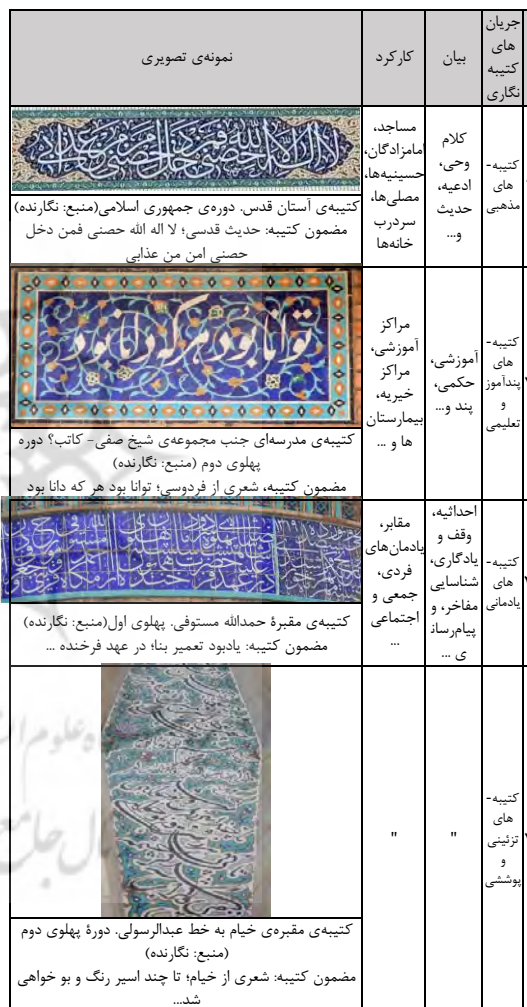 جریان
های
کتیبه
نگاری
بیان
کارکرد
نمونه‌ی تصویری
کتیبه-
های
مذهبی
کلام
وحی،
ادعیه،
حدیث
و...
مساجد،
امامزادگان،
حسینیه‌ها،
مصلی‌ها،
سردرب
خانه‌ها
لا اله الا الله حصنی فمن دخل حصنی امن من عذابی
کتیبه‌ی آستان قدس. دوره‌ی جمهوری اسلامی(منبع: نگارنده)
مضمون کتیبه: حدیث قدسی؛ لا اله الله حصنی فمن دخل
حصنی امن من عذابی
کتیبه-
های
پندآموز
و
تعلیمی
آموزشی،
حکمی،
پند و...
مراکز
آموزشی،
مراکز
خیریه،
بیمارستان
ها و ...
توانا بود هر که دانا بود
کتیبه‌ی مدرسه‌ای جنب مجموعه‌ی شیخ صفی- کاتب؟ دوره
پهلوی دوم (منبع: نگارنده)
مضمون کتیبه، شعری از فردوسی؛ توانا بود هر که دانا بود
کتیبه-
های
یادمانی
احداثیه،
وقف و
یادگاری،
شناسایی
مفاخر، و
پیام‌رسان
ی ...
مقابر،
یادمان‌های
فردی،
جمعی و
اجتماعی
...
کتیبه‌ی مقبرۀ حمدالله مستوفی. پهلوی اول(منبع: نگارنده)
مضمون کتیبه: یادبود تعمیر بنا؛ در عهد فرخنده ...
کتیبه-
های
تزئینی
و
پوششی
"
"
کتیبه‌ی مقبره‌ی خیام به خط عبدالرسولی. دورۀ پهلوی دوم
(منبع: نگارنده)
مضمون کتیبه: شعری از خیام؛ تا چند اسیر رنگ و بو خواهی
شد...